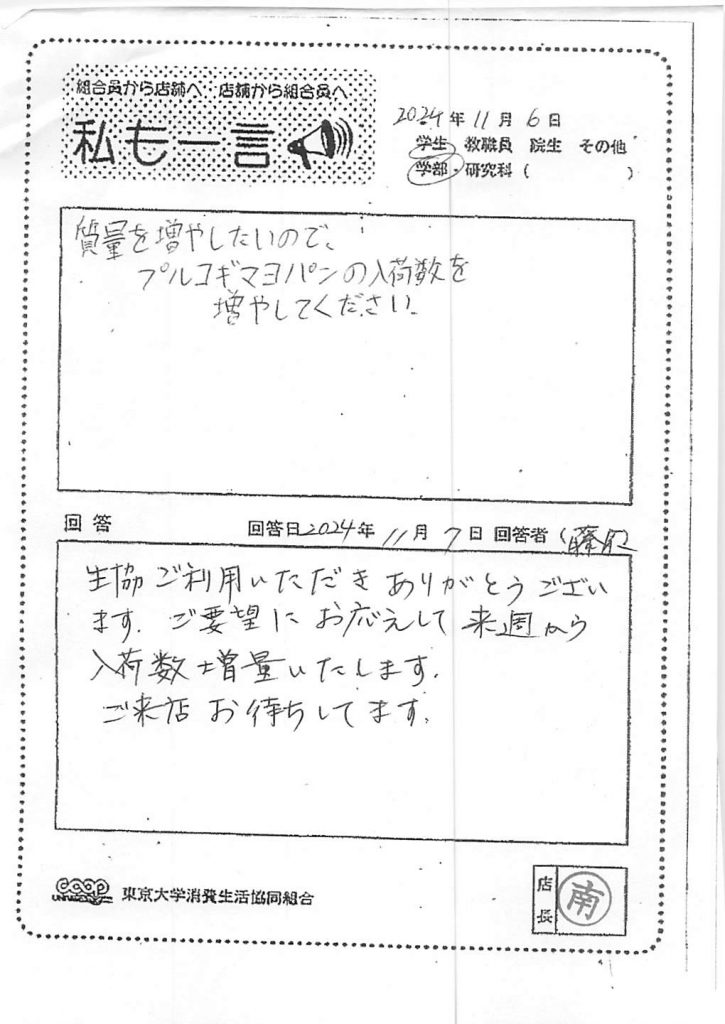 組合員から店舗へ 店舗から組合員へ
私も一言
2024年11月6日
学生 教職員 院生 その他
学部・研究科( )
質量を増やしたいので、
プルコギマヨパンの入荷数を
増やしてください。
回答 回答日2024年11月7日 回答者(
生協ご利用いただきありがとうござい
ます。ご要望にお応えして来週から
入荷数増量いたします。
ご来店お待ちしてます。
coop 東京大学消費生活協同組合
UNIVERSITY
店長 南